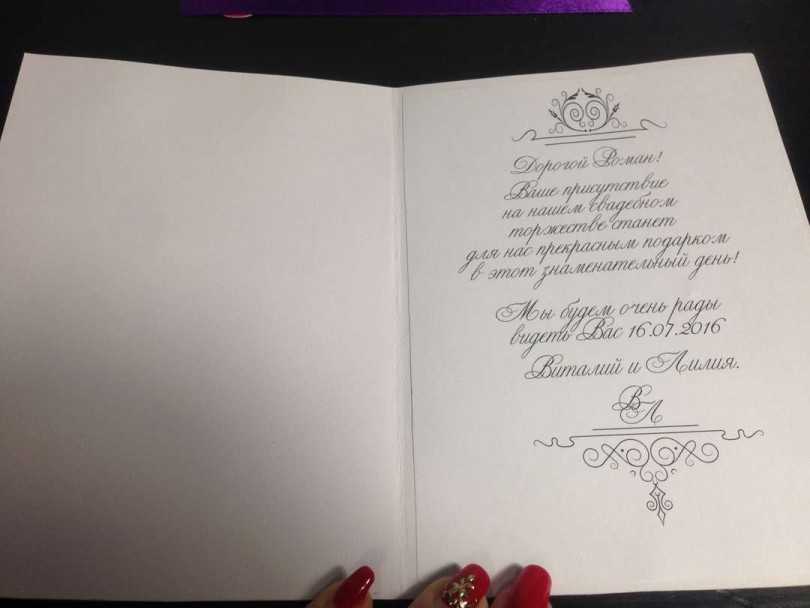 Дорогой Роман!
Ваше присутствие
на нашем свадебном
торжестве станет
для нас прекрасным подарком
в этот знаменательный день!
Мы будем очень рады
видеть Вас 16.07.2016
Виталий и Лилия.
ВЛ